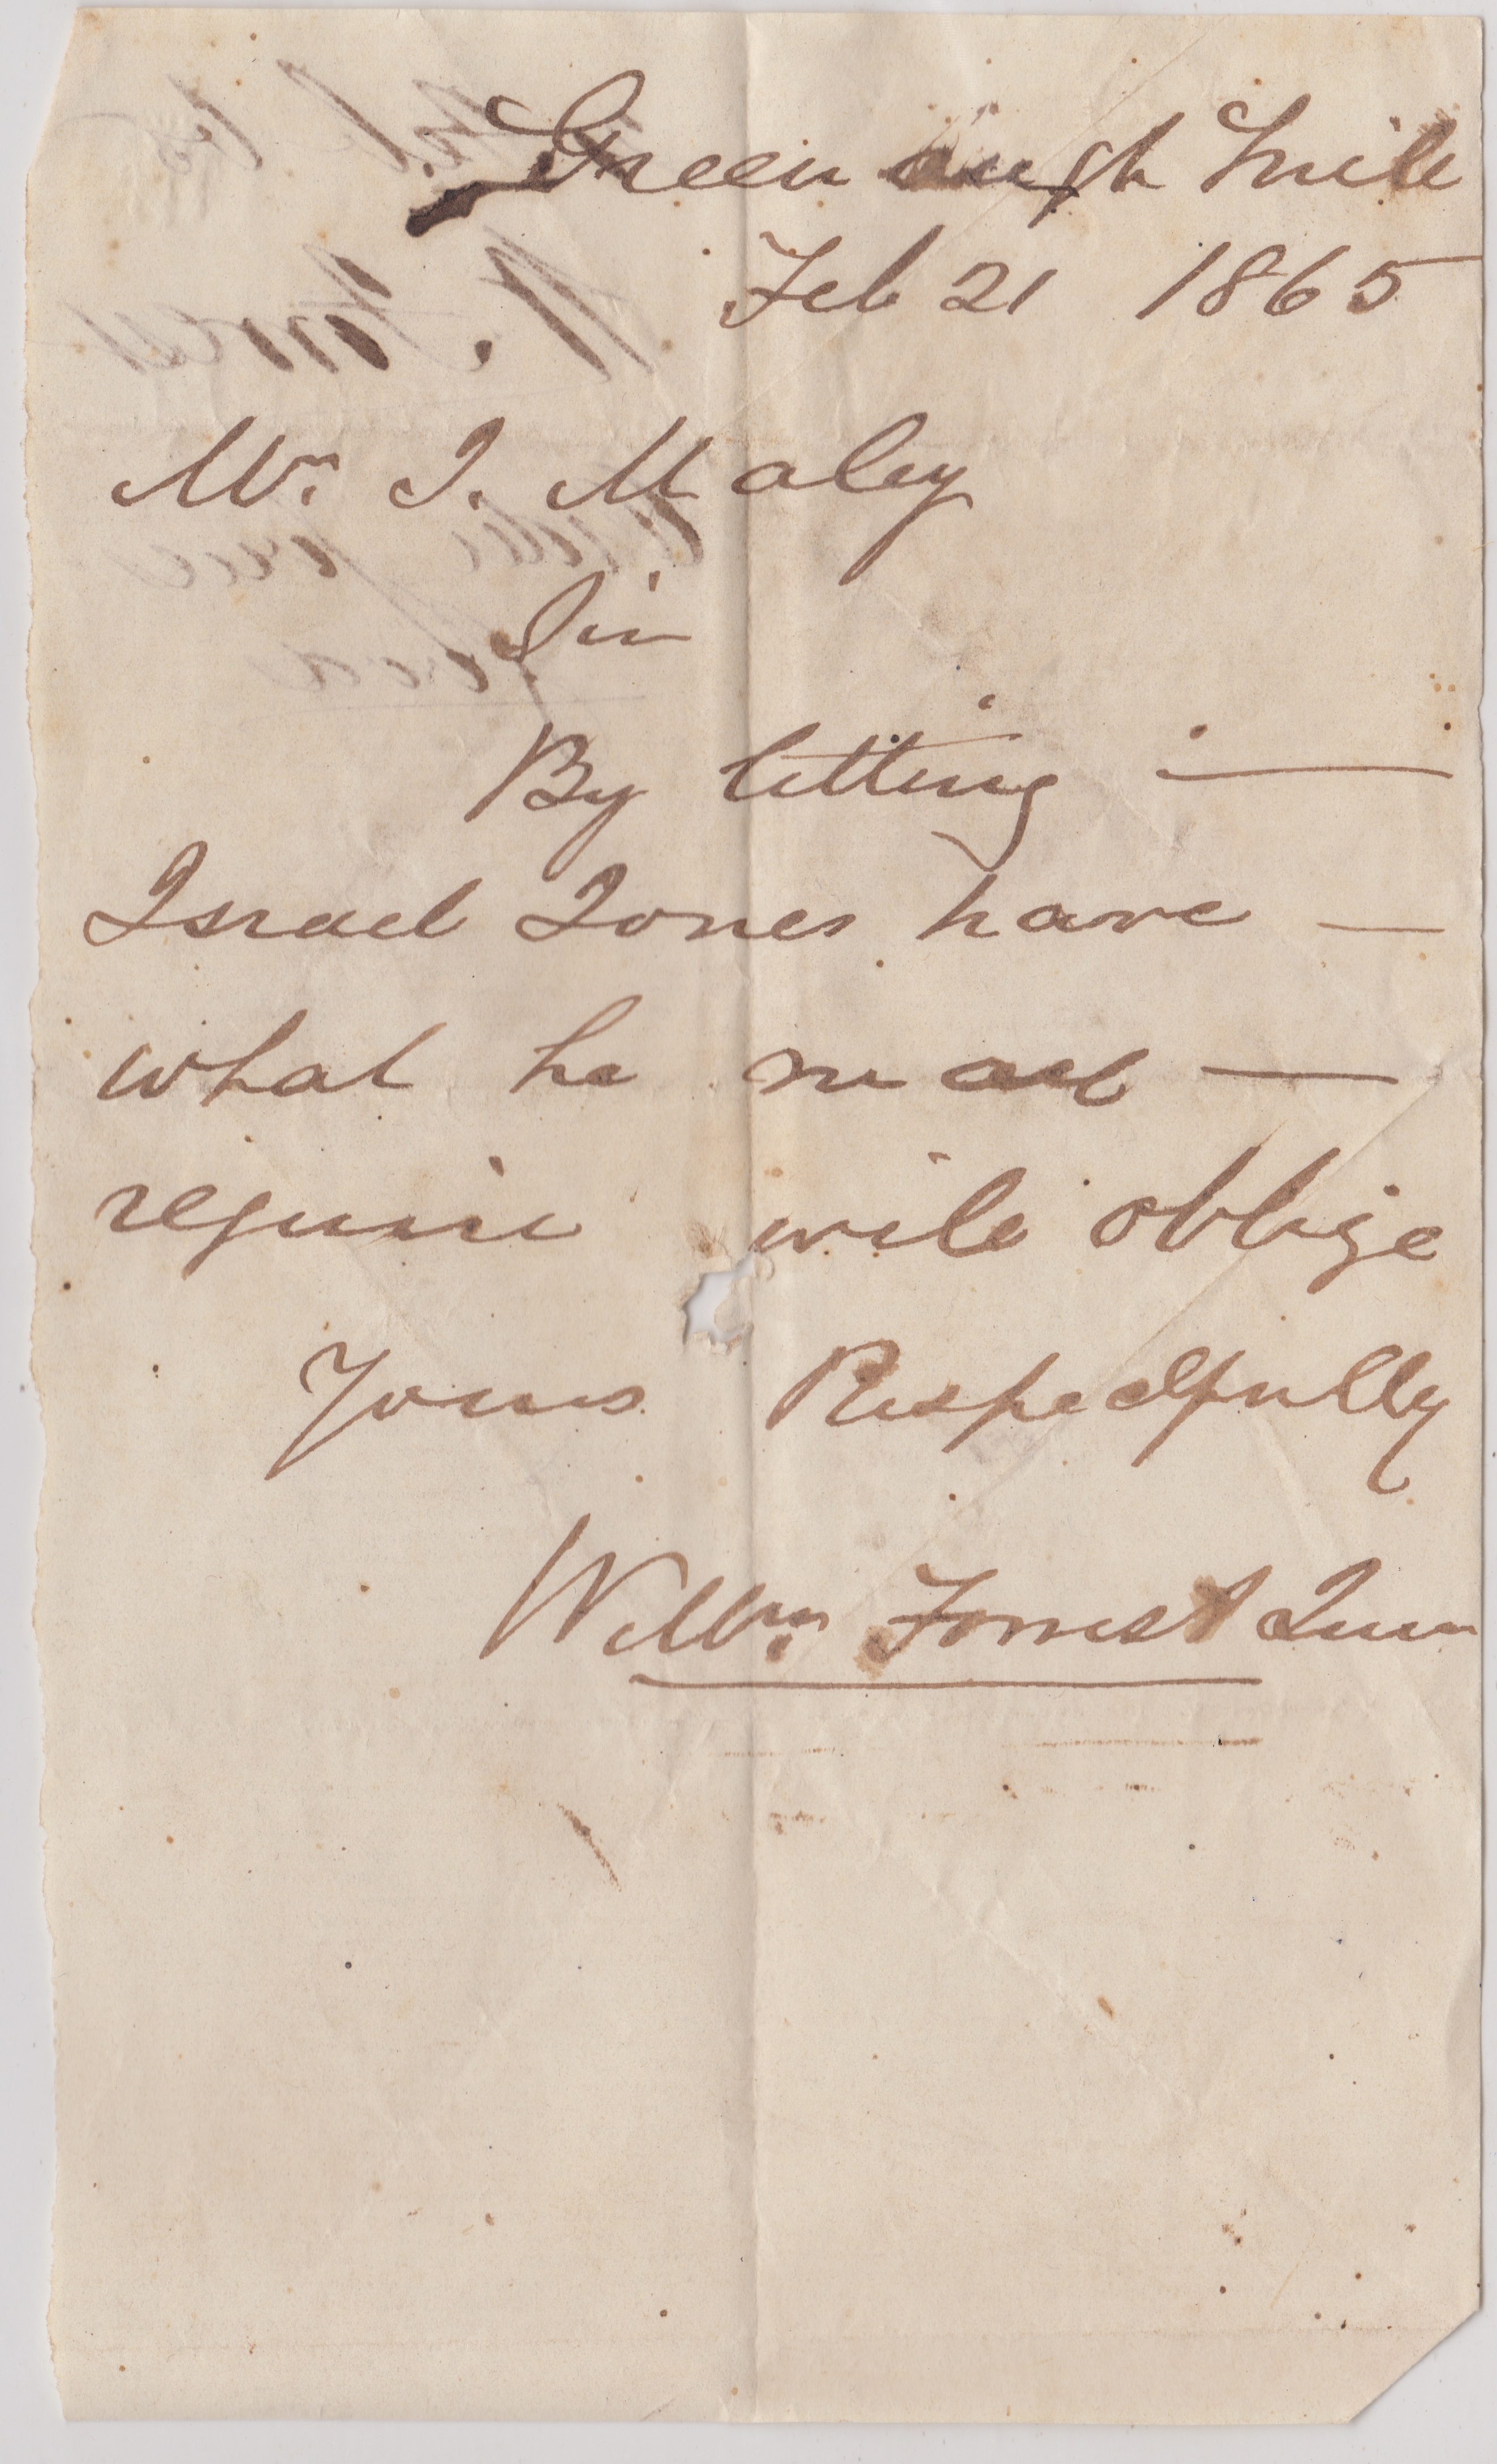 Greenough
Feb 21 1865
Mr. J. Maley
Sir
By letting —
Israel Jones have —
what he may —
require will oblige
Yours Respectfully
Willm. Forrest Junr